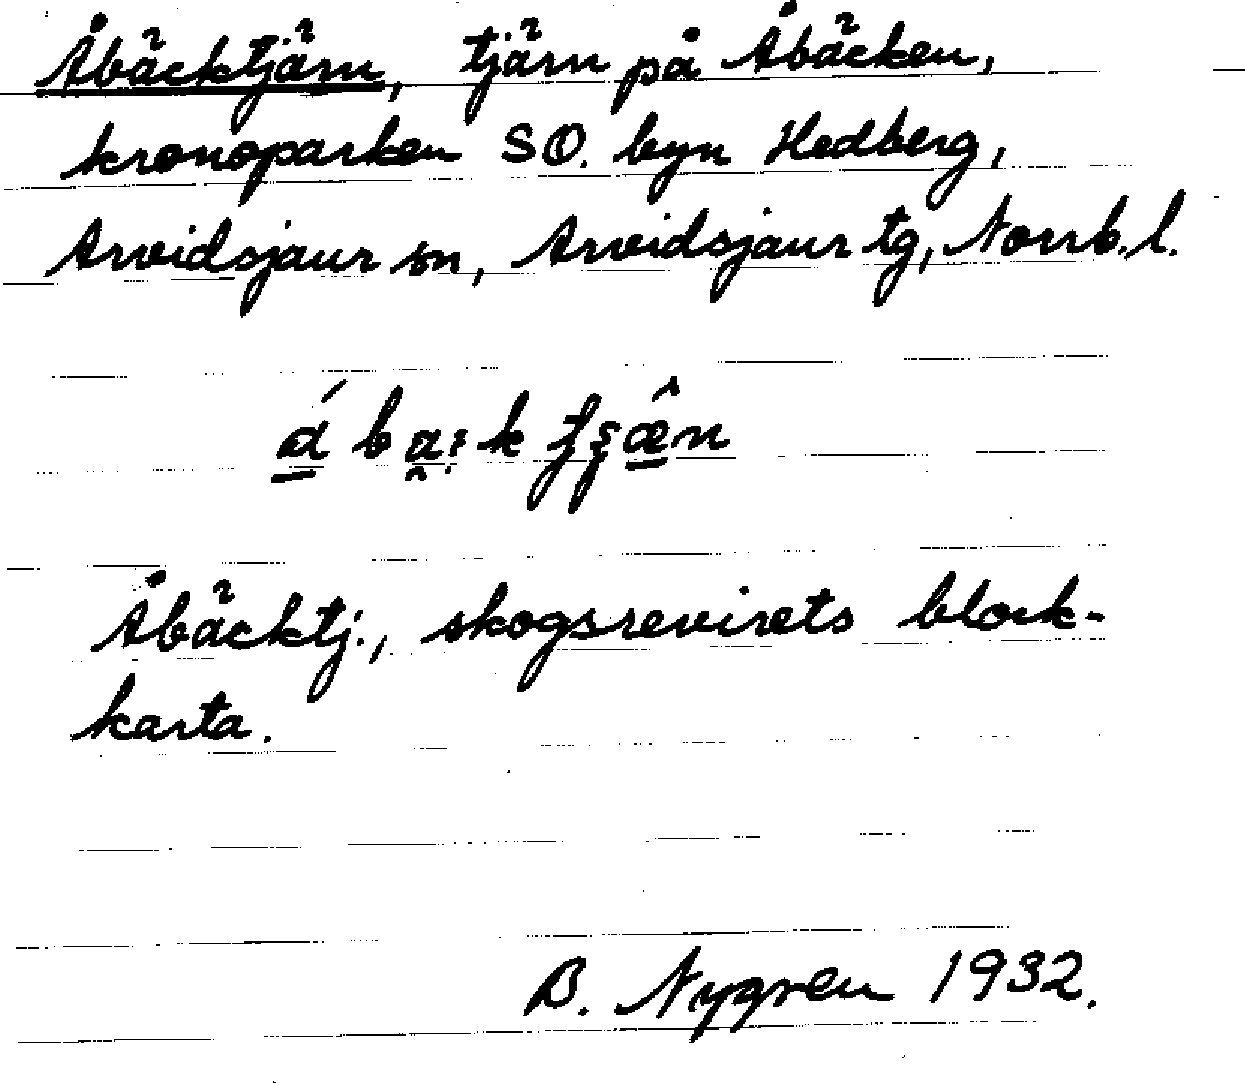 Åbäcktjärn, tjärn på Åbäcken,
kronoparken SO. byn Hedberg,
Arvidsjaur sn, Arvidsjaur tg, Norrb. l.
Åbäcktj., skogsrevirets block-
karta.
B. Nygren 1932.